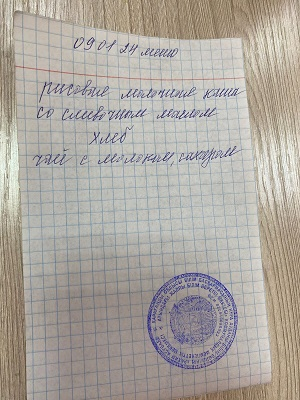 09 01 24 меню
рисовые молочные каша
со сливочным маслом
хлеб
чай с молоком, сахаром